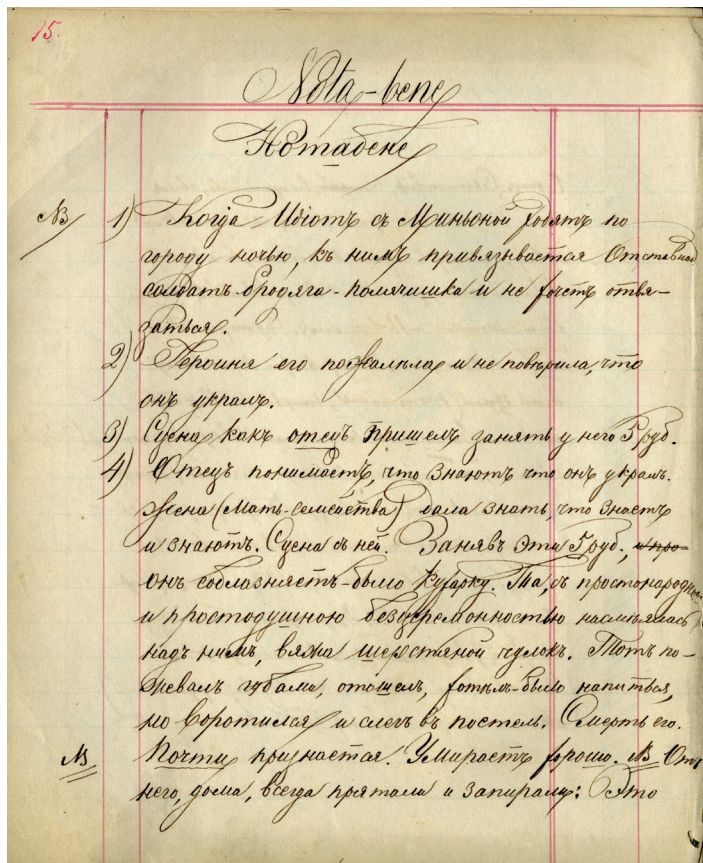 15.
Nota-bene
Нотабене
NB 1) Когда Идіотъ съ Миньоной ходятъ по
городу ночью, къ нимъ привязывается Отставной
солдатъ-бродяга-полячишка и не хочетъ отвя-
заться.
2) Героиня его пожалѣла и не повѣрила, что
онъ укралъ.
3) Сцена какъ отецъ пришелъ занять у него 5 руб.
4) Отецъ понимаетъ, что знаютъ что онъ укралъ.
Жена (Мать-семейства) дала знать, что знаетъ
и знаютъ. Сцена съ ней. Занявъ эти 5 руб., и про-
онъ соблазняетъ-было кухарку. Та, съ простонародною
и простодушною безцеремонностью насмѣялась
надъ нимъ, вяжа шерстяной чулокъ. Тотъ по-
жевалъ губами, отошелъ, хотѣлъ-было напиться,
но воротился и слегъ въ постель. Смерть его.
NB Почти признается. Умираетъ хорошо. NB Отъ
него, дома, всегда прятали и запирали: Это